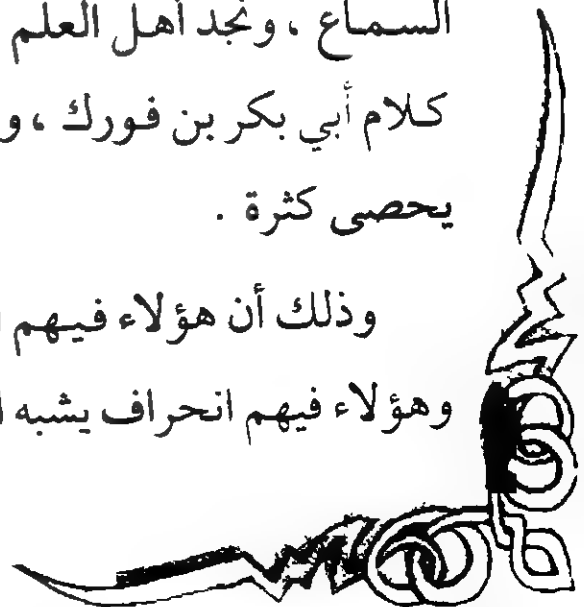 السماع ، ونجد أهل العلم
كلام أبي بكر بن فورك ، و
يحصى كثرة .
وذلك أن هؤلاء فيهم ا
وهؤلاء فيهم انحراف يشبه ا